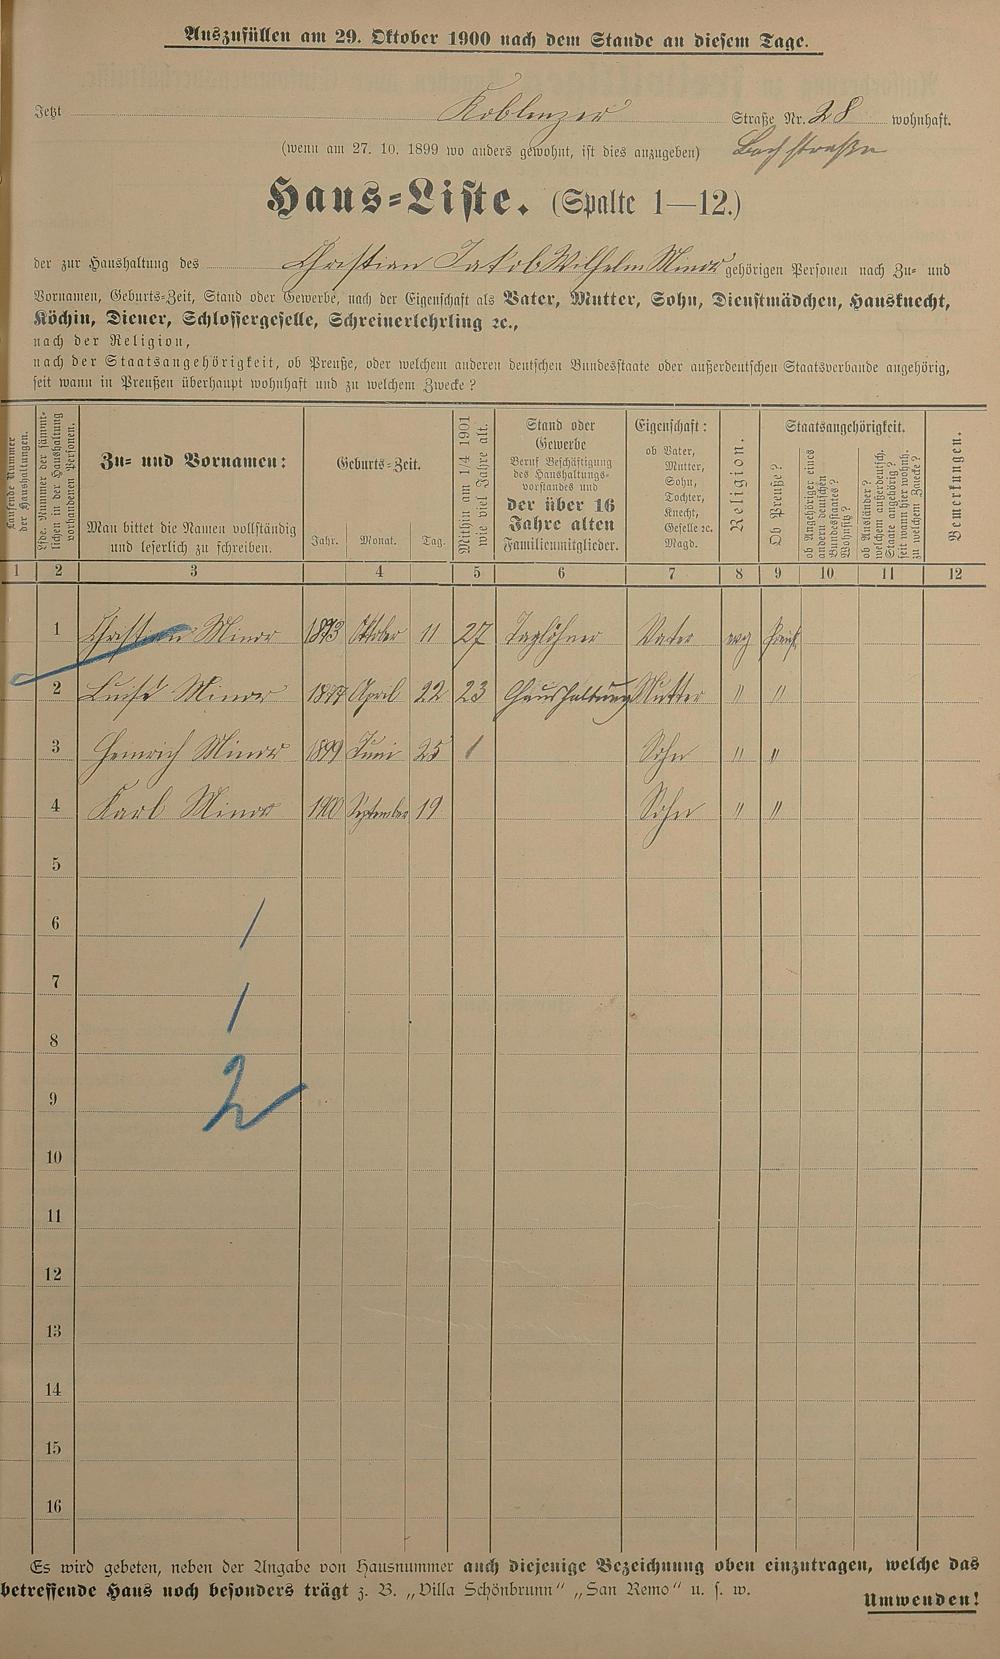 Auszufüllen am 29. Oktober 1900 nach dem Stande an diesem Tage.
Jetzt Koblenzer Straße Nr. 28 wohnhaft.
(wenn am 27. 10. 1899 wo anders gewohnt, ist dies anzugeben) Bachstraße
Haus-Liste. (Spalte 1—12.)
der zur Haushaltung des Christian Jakob Wilhelm Minor gehörigen Personen nach Zu- und
Vornamen, Geburts-Zeit, Stand oder Gewerbe, nach der Eigenschaft als Vater, Mutter, Sohn, Dienstmädchen, Hausknecht,
Köchin, Diener, Schlossergeselle, Schreinerlehrling ꝛc.,
nach der Religion,
nach der Staatsangehörigkeit, ob Preuße, oder welchem anderen deutschen Bundesstaate oder außerdeutschen Staatsverbande angehörig,
seit wann in Preußen überhaupt wohnhaft und zu welchem Zwecke?
Laufende Nummer
der Haushaltungen.
Lfde. Nummer der sämmt-
lichen in der Haushaltung
vorhandenen Personen.
Zu- und Vornamen:
Man bittet die Namen vollständig
und leserlich zu schreiben.
Geburts-Zeit.
Jahr. Monat. Tag.
Mithin am 1/4 1901
wie viel Jahre alt.
Stand oder
Gewerbe
Beruf Beschäftigung
des Haushaltungs-
vorstandes und
der über 16
Jahre alten
Familienmitglieder.
Eigenschaft:
ob Vater,
Mutter,
Sohn,
Tochter,
Knecht,
Geselle ꝛc.
Magd.
Religion.
Staatsangehörigkeit.
Ob Preuße?
ob Angehöriger eines
andern deutschen
Bundesstaates?
Wohnsitz?
ob Ausländer?
welchem außerdeutsch.
Staate angehörig?
seit wann hier wohnh.
zu welchem Zwecke?
Bemerkungen.
1 2 3 4 5 6 7 8 9 10 11 12
1 Christian Minor 1873 Oktober 11 27 Taglöhner Vater evg Preuß.
2 Luise Minor 1877 April 22 23 Haushaltung Mutter " "
3 Heinrich Minor 1899 Juni 25 1 Sohn " "
4 Karl Minor 1900 September 19 Sohn " "
5
6 1
7 1
8
9 2
10
11
12
13
14
15
16
Es wird gebeten, neben der Angabe von Hausnummer auch diejenige Bezeichnung oben einzutragen, welche das
betreffende Haus noch besonders trägt z. B. „Villa Schönbrunn" „San Remo" u. s. w.
Umwenden!